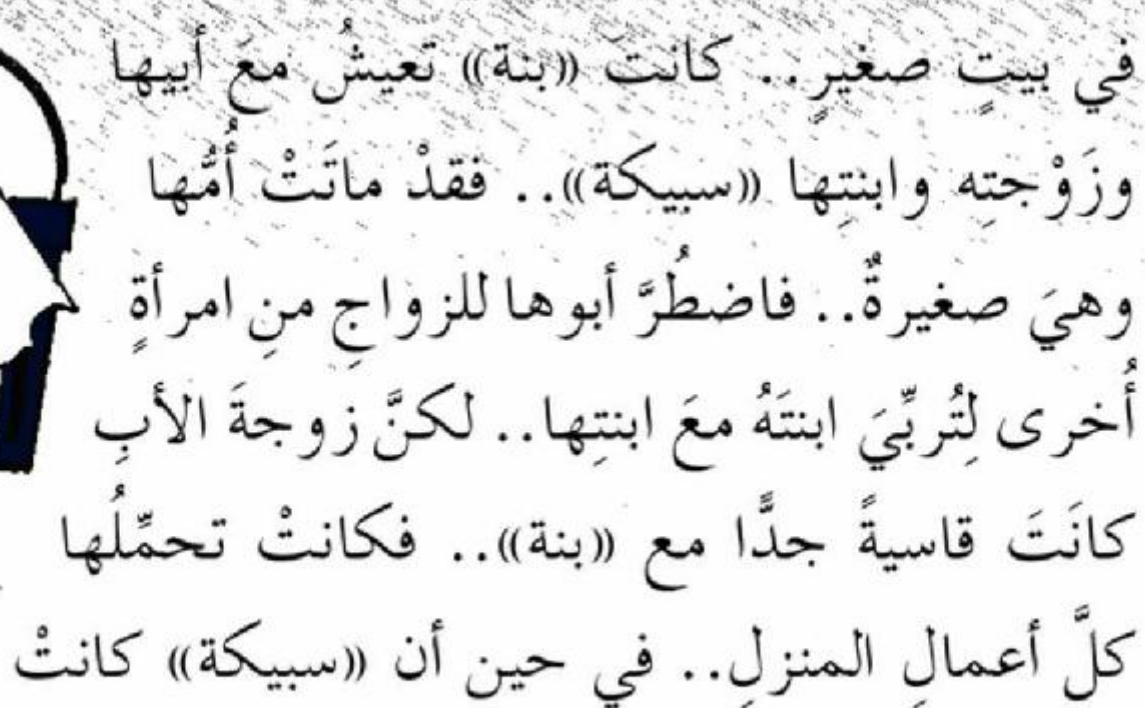 في بيتٍ صغيرٍ.. كانتَ ((بنة)) تعيشُ معَ أبيها
وزَوْجتِه وابنتِها ((سبيكة)).. فقدْ ماتَتْ أُمُّها
وهيَ صغيرةٌ.. فاضطُرَّ أبوها للزواجِ منِ امرأةٍ
أُخرى لِتُربِّيَ ابنتَهُ معَ ابنتِها.. لكنَّ زوجةَ الأبِ
كانَتَ قاسيةً جدًّا مع ((بنة)).. فكانتْ تحمِّلُها
كلَّ أعمالِ المنزلِ.. في حين أن ((سبيكة)) كانتْ